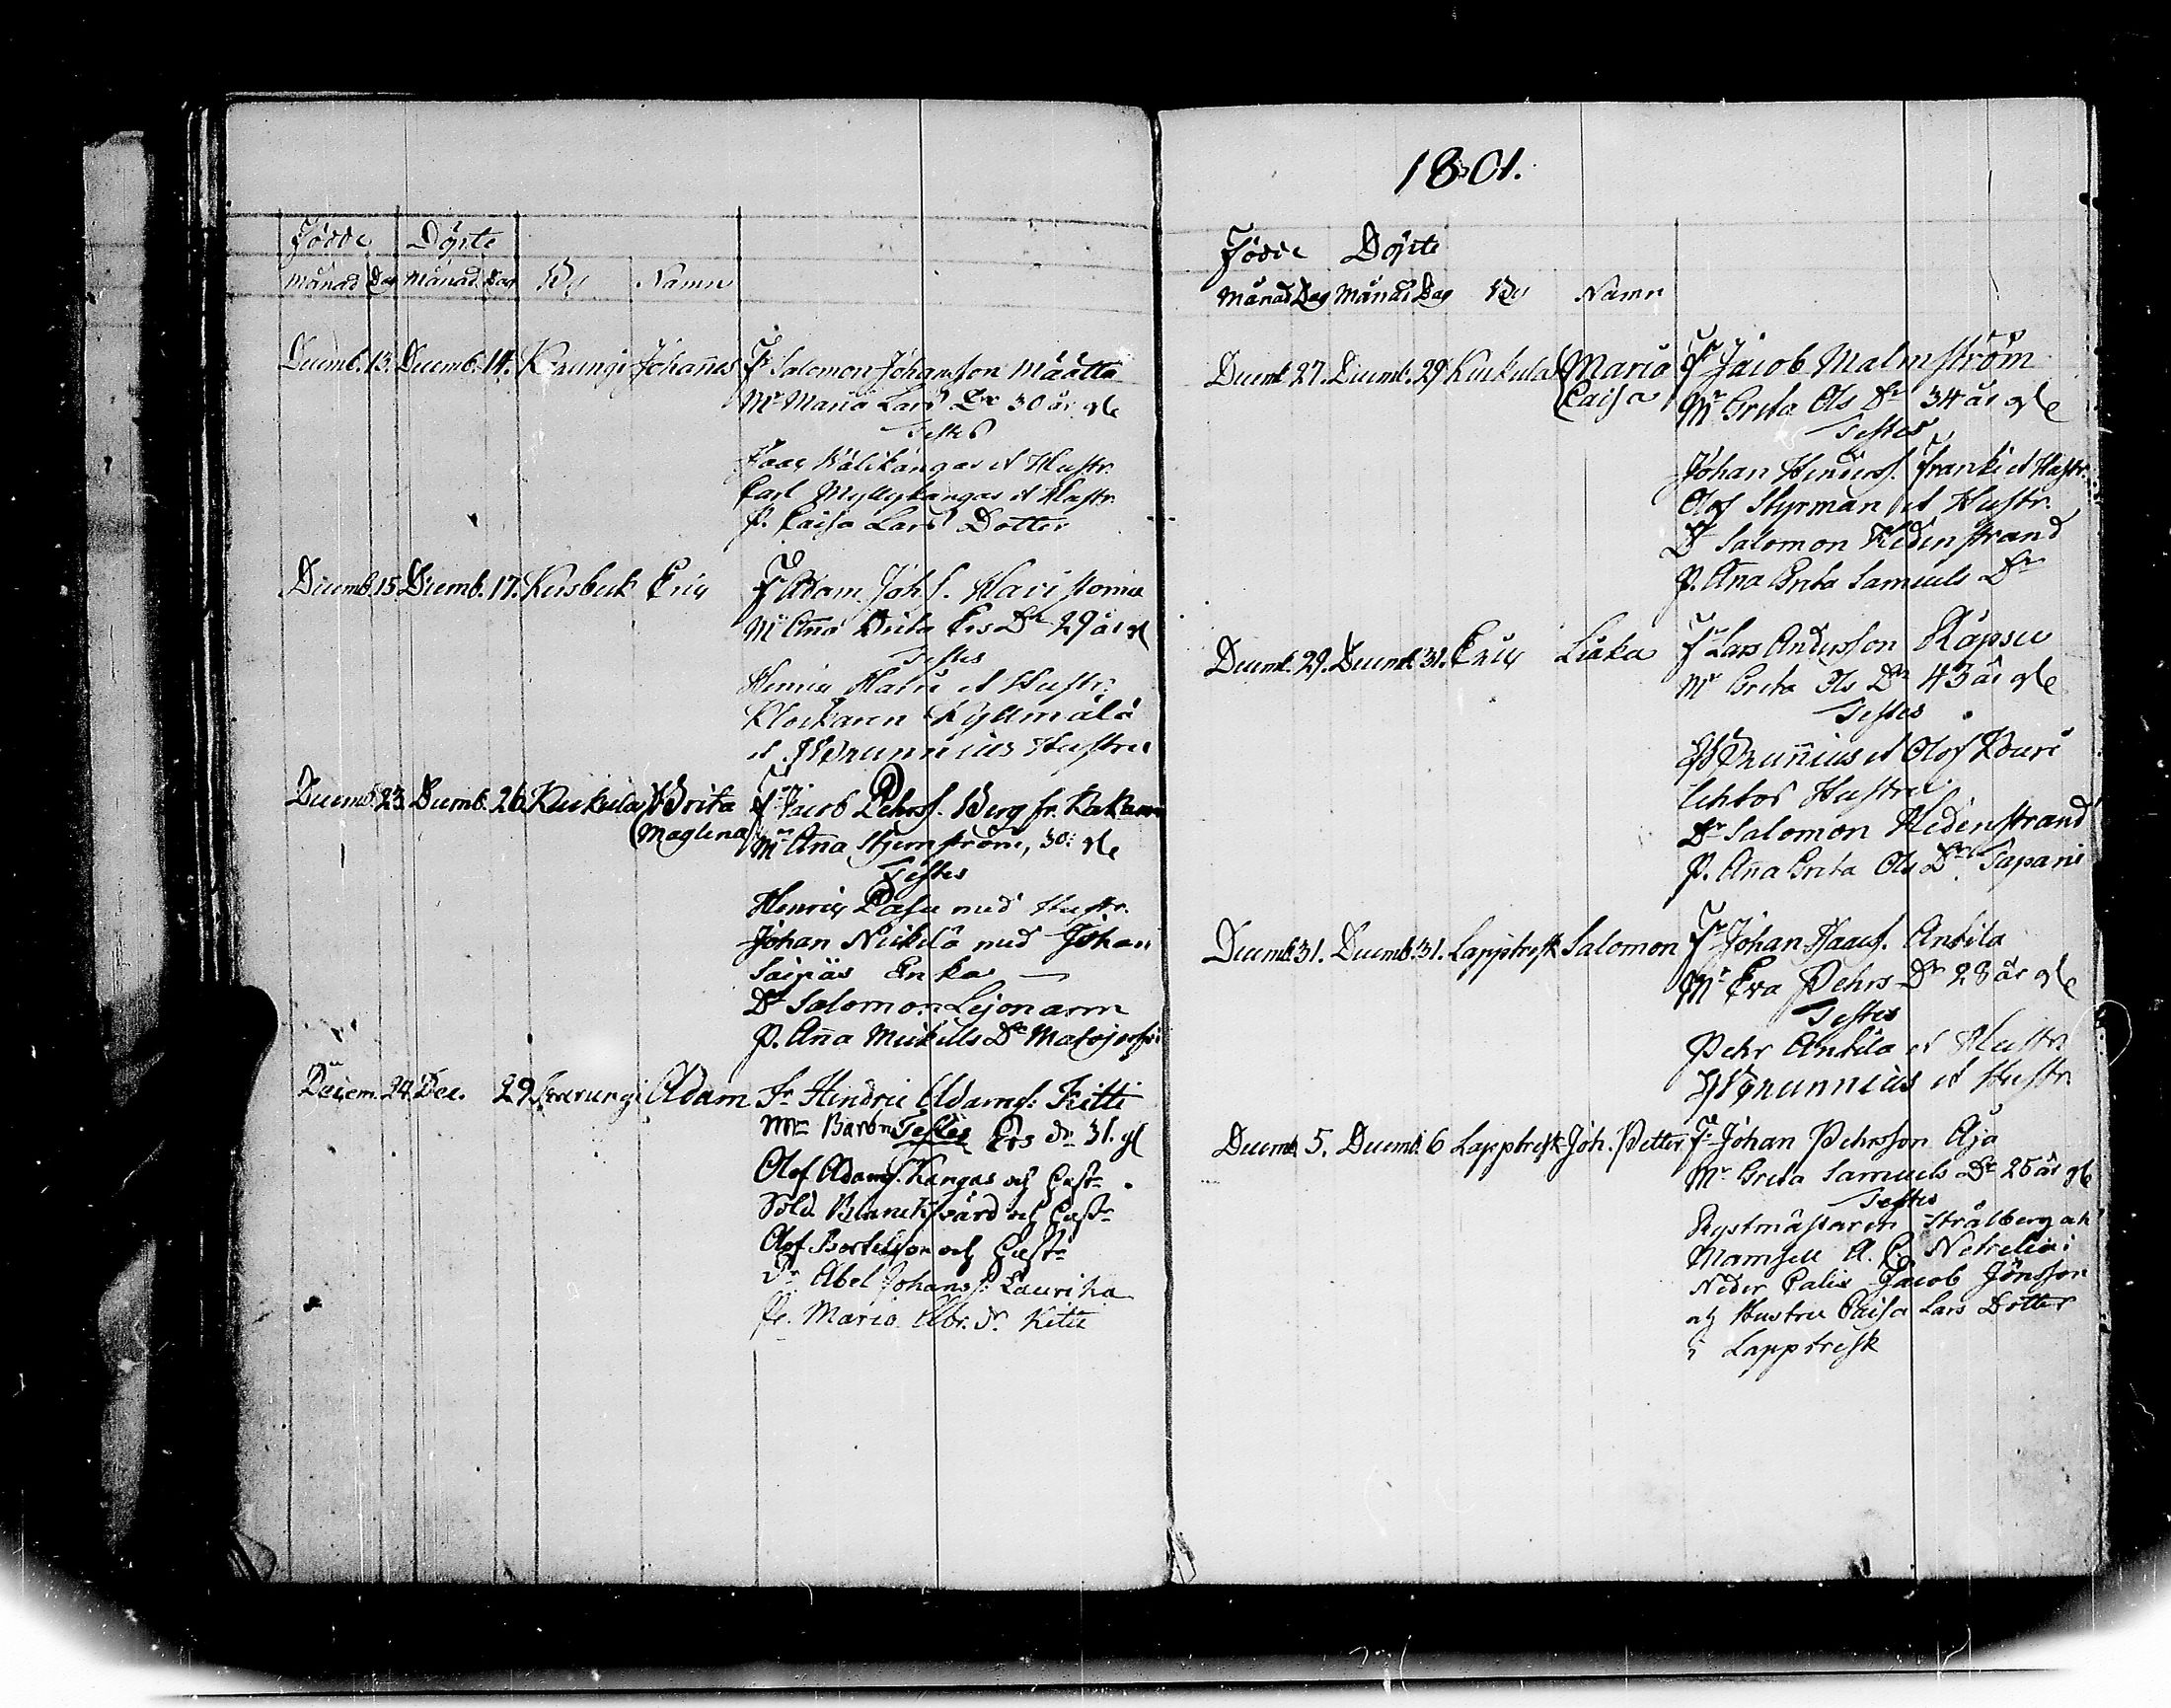 Födde Döpte
Månad Dag Månad Dag By Namn
Decemb. 13. Decemb. 14. Karungi Johañes Fr Salomon Johansson Määttä
Mr Maria Lars Dr 30 år gl
Testes
Isaac Välikangas et Hustr.
Carl Myllykangas et Hustr.
P. Caisa Lars Dotter
Decemb. 15 Decemb. 17. Eric Fr Adam Joh S.
Mr Aña Brita Ers Dr 29 år gl
Testes
Henric et Hustr.
Klockaren Kyllmälä
et Brunnius Hustru
Decemb. 23. Decemb. 26. Kuckula Brita Fr Jacob Pehrs S. Berg fr.
Maglena Mr Aña Stjernström, 30: gl
Testes
Henric med Hustr.
Johan Nickilä med Johan
Enka
Dr Salomon Lejonarm
P. Aña Mickells Dr
Decem. 24. Dec. 29 Karungi Adam Fr Hindric Adams S. Kitti
Mr Barbr Ers dr 31. gl
Testes
Olof Adams S. Kangas och hustr.
Sold. Blanck och hustr
Olof Bertilsson och hustr
Dr Abel Johans S. Laurika
P. Maria Abr. dr. Kitti
1801.
Födde Döpte
Månad Dag Månad Dag By Namn
Decemb. 27. Decemb. 29 Kuckula Maria Fr Jacob Malmström
Caisa Mr Greta Ols Dr 34 år gl
Testes
Johan Henders S. Franki et Hustr.
Olof Styrman et Hustr.
Dr Salomon Hedenstrand
P. Aña Brita Samuels Dr
Decemb. 29. Decemb. 31. Eric Liaka Fr Lars Andersson Räpsu
Mr Greta Ols Dr 43 år gl
Testes
Bruñius et Olof
Hustru
Dr Salomon Hedenstrand
P. Aña Greta Ols Dr Tapani
Decemb. 31. Decemb. 31. Lappträsk Salomon Fr Johan Isaac S. Antila
Mr Eva Pehrs Dr 28 år gl
Testes
Pehr Antila et Hustr.
Brunnius et Hustr.
Decemb. 5. Decemb. 6 Lappträsk Joh. Petter Fr Johan Pehrsson Äjä
Mr Greta Samuels Dr 25 år gl
Testes
Rystmästaren Strålberg och
Mamsell A. C. Netrelia i
Neder Calix Jacob Jönsson
och Hustru Caisa Lars Dotter
i Lappträsk